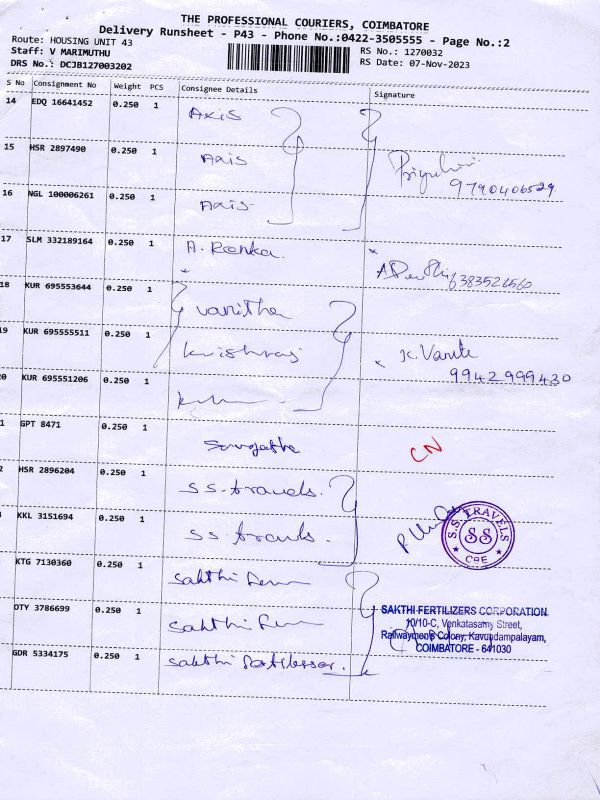 THE PROFESSIONAL COURIERS, COIMBATORE
Delivery Runsheet - P43 - Phone No.:0422-3505555 - Page No.:2
Route: HOUSING UNIT 43 RS No.: 1270032
Staff: V MARIMUTHU RS Date: 07-Nov-2023
DRS No.: DCJB127003202
S No Consignment No Weight PCS Consignee Details Signature
14 EDQ 16641452 0.250 1 Axis
15 HSR 2897490 0.250 1 Axis
9790406529
16 NGL 100006261 0.250 1 Axis
17 SLM 332189164 0.250 1 A. Renka.
6383526560
18 KUR 695553644 0.250 1 vanitha
19 KUR 695555511 0.250 1 krishraj K. Vanite
9942999430
0 KUR 695551206 0.250 1
1 GPT 8471 0.250 1 Sangatha CN
2 HSR 2896204 0.250 1 SS. travels.
KKL 3151694 0.250 1 SS travels. S.S. TRAVELS SS CBE
KTG 7130360 0.250 1 Sakthi
DTY 3786699 0.250 1 Sakthi
SAKTHI FERTILIZERS CORPORATION
10/10-C, Venkatasamy Street,
Railwaymens Colony, Kavundampalayam,
COIMBATORE - 641030
GDR 5334175 0.250 1 Sakthi